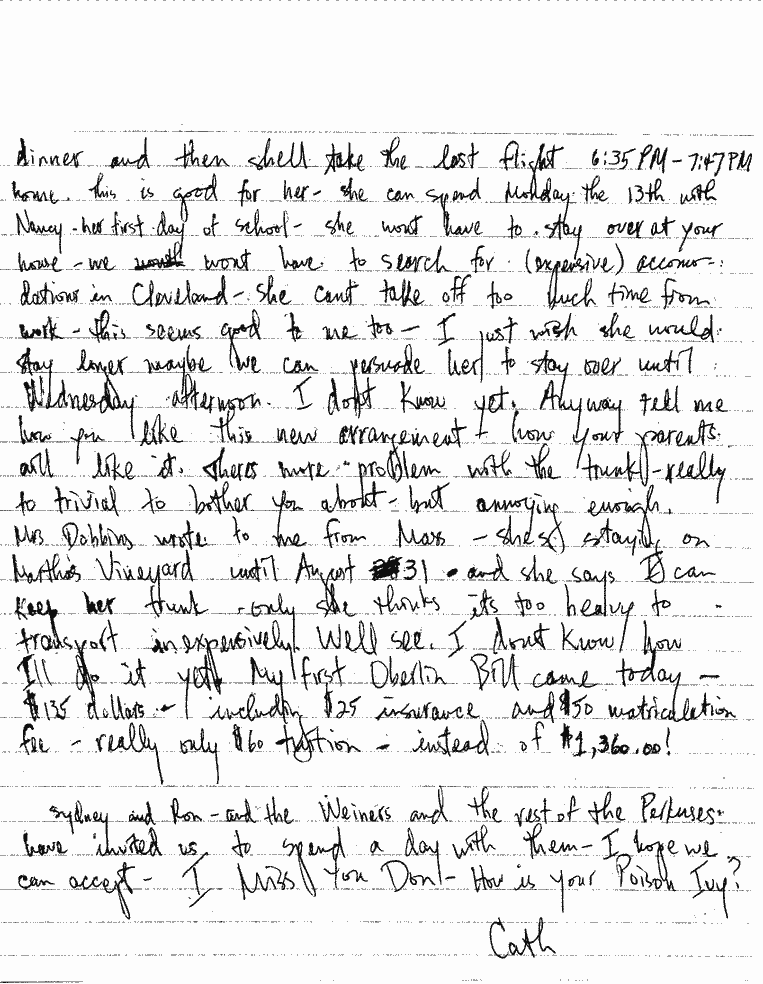 dinner and then shell take the last flight 6:35 PM - 7:47 PM
home. This is good for her - she can spend Monday the 13th with
Nancy - her first day of school - she wont have to stay over at your
house - we wont have to search for (expensive) accomo-
dations in Cleveland - she cant take off too much time from
work - this seems good to me too - I just wish she would
stay longer maybe we can persuade her to stay over until
Wednesday afternoon. I dont know yet. Anyway tell me
how you like this new arrangement + how your parents
will like it. Theres more problem with the trunk - really
to trivial to bother you about - but annoying enough.
Mrs Dobbins wrote to me from Mass - shes staying on
Marthas Vineyard until August 31 - and she says I can
keep her trunk - only she thinks its too heavy to
transport inexpensively. Well see. I dont know how
Ill do it yet. My first Oberlin Bill came today -
$135 dollars - including $25 insurance and $50 matriculation
fee - really only $60 tuition - instead of $1,360.00!
Sydney and Ron - and the Weiners and the rest of the Perkuses
have invited us to spend a day with them - I hope we
can accept - I Miss You Don - How is your Poison Ivy?
Cath